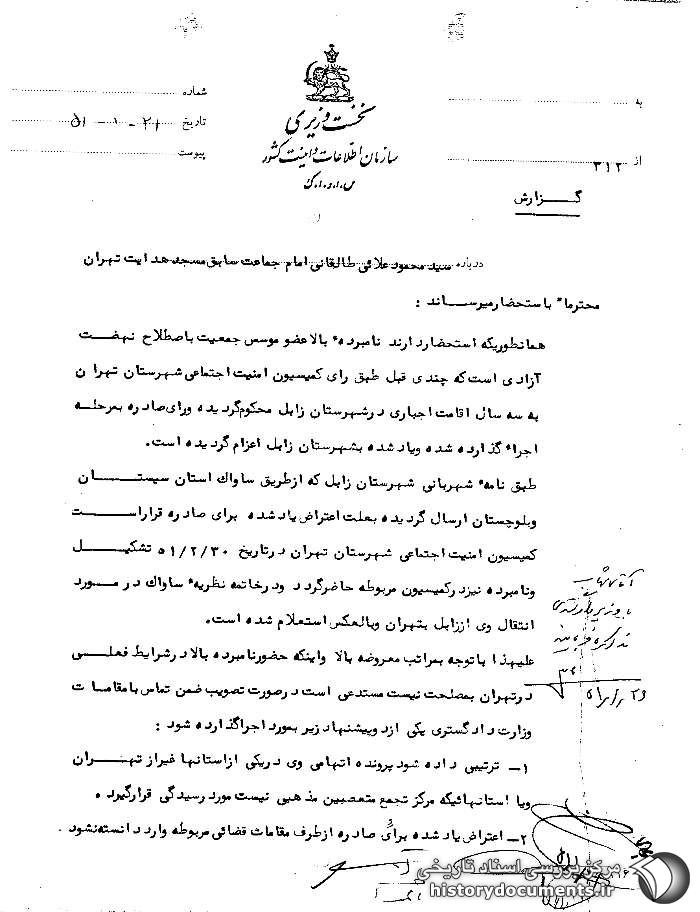 شماره
به
تاریخ ۲۱ - ۱ - ۵۱
پیوست
از ۳۱۲
نخست وزیری
سازمان اطلاعات و امنیت کشور
س.ا.و.ا.ک
گـــزارش
درباره سید محمود علائی طالقانی امام جماعت سابق مسجد هدایت تهران
محترما" باستحضار میرســاند :
همانطوریکه استحضار دارند نامبرده بالا عضو موسس جمعیت باصطلاح نهضت
آزادی است که چندی قبل طبق رای کمیسیون امنیت اجتماعی شهرستان تهران
به سه سال اقامت اجباری در شهرستان زابل محکوم گردیده ورای صادره بمرحله
اجراء گذارده شده ویاد شده بشهرستان زابل اعزام گردیده است.
طبق نامه شهربانی شهرستان زابل که از طریق ساواک استان سیستــــان
وبلوچستان ارسال گردیده بعلت اعتراض یاد شده برای صادره قرار اســت
کمیسیون امنیت اجتماعی شهرستان تهران درتاریخ ۵۱/۲/۳۰ تشکیـــل
ونامبرده نیز در کمیسیون مربوطه حاضر گردد ودرخاتمه نظریه ساواک در مــورد
انتقال وی از زابل بتهران وبالعکس استعلام شده است.
علیهذا با توجه بمراتب معروضه بالا واینکه حضور نامبرده بالا در شرایط فعلــی
در تهران بمصلحت نیست مستدعی است در صورت تصویب ضمن تماس با مقامات
وزارت دادگستری یکی از دو پیشنهاد زیر بمورد اجرا گذارده شود :
۱ـ ترتیبی داده شود پرونده اتهامی وی در یکی از استانها غیر از تهــران
ویا استانهائیکه مرکز تجمع متعصبین مذهبی نیست مورد رسیدگی قرار گیرد .
۲ـ اعتراض یاد شده برای صادره از طرف مقامات قضائی مربوطه وارد دانسته نشود .
مرکز بررسی اسناد تاریخی
historydocuments.ir